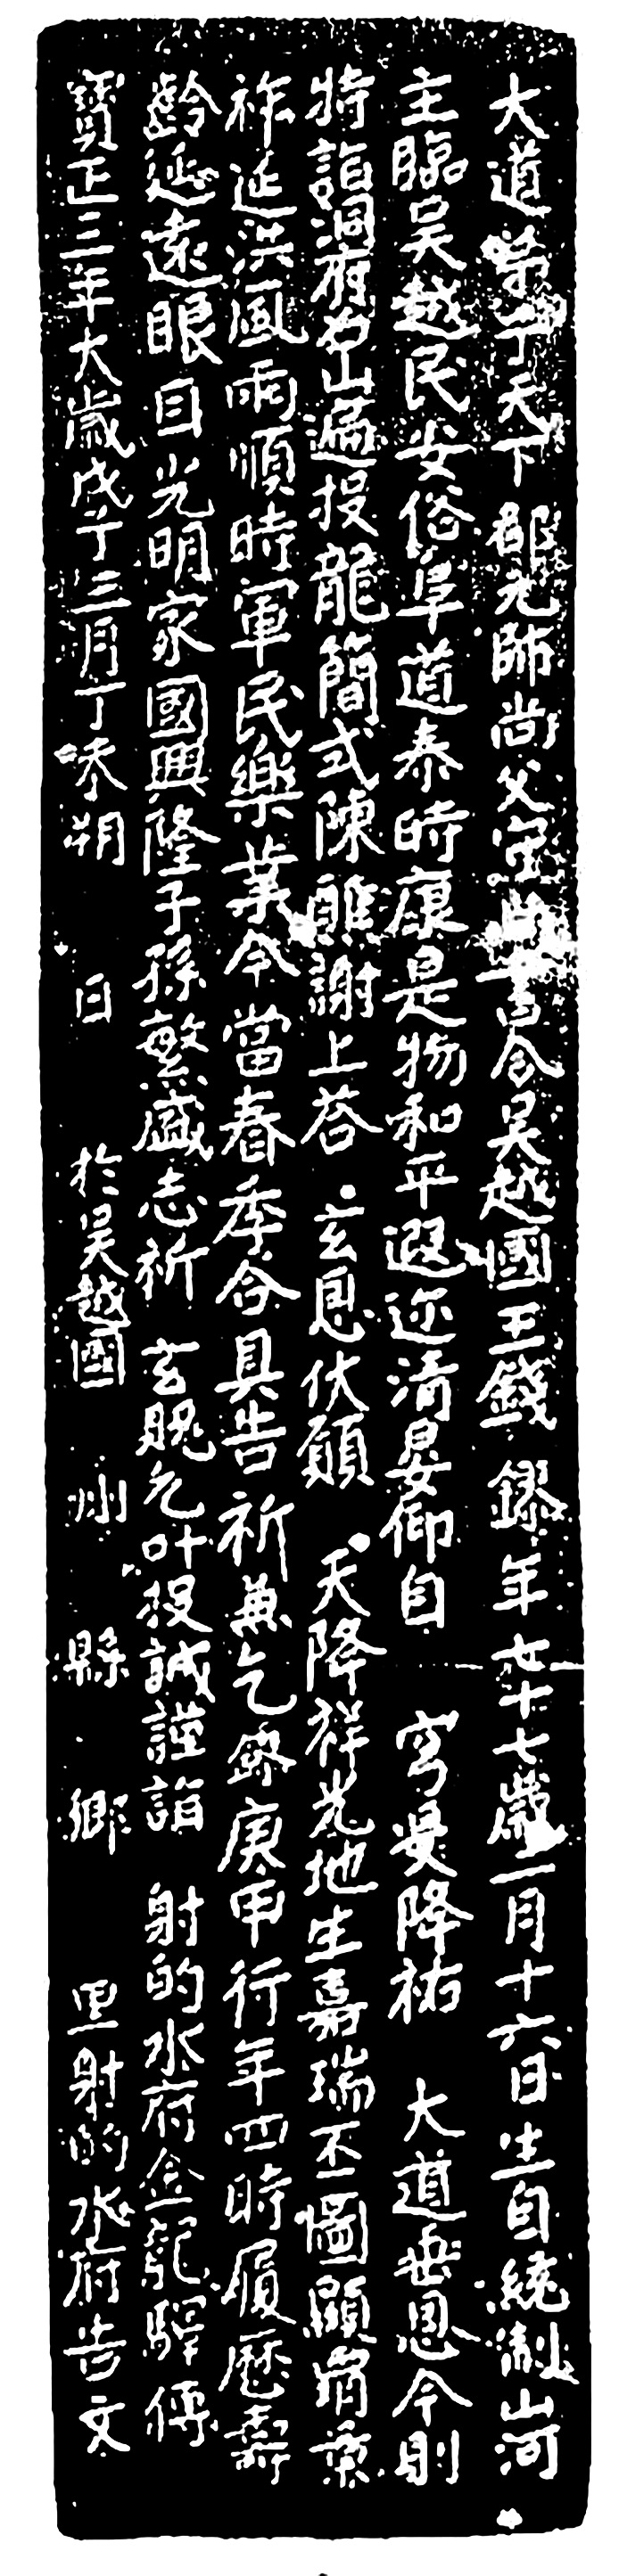 大道弟子天下都元帥尚父守尚書令吳越國王錢鏐年七十七歲二月十六日生自統制山河
主臨吳越民安俗阜道泰時康是物和平遐迩清晏仰自穹旻降祐大道垂恩今則
特詣洞府名山遍投龍簡式陳醮謝上荅玄恩伏願天降祥光地生嘉瑞丕圖顯霸業
祚延洪風雨順時軍民樂業今當春季合具告祈兼乞鏐庚甲行年四時履歷壽
齡延遠眼目光明家國興隆子孫繁盛志祈玄貺允叶投誠謹詣射的水府金龍驛傳
寶正三年大歲戊子三月丁未朔日於吳越國州縣鄉里射的水府告文